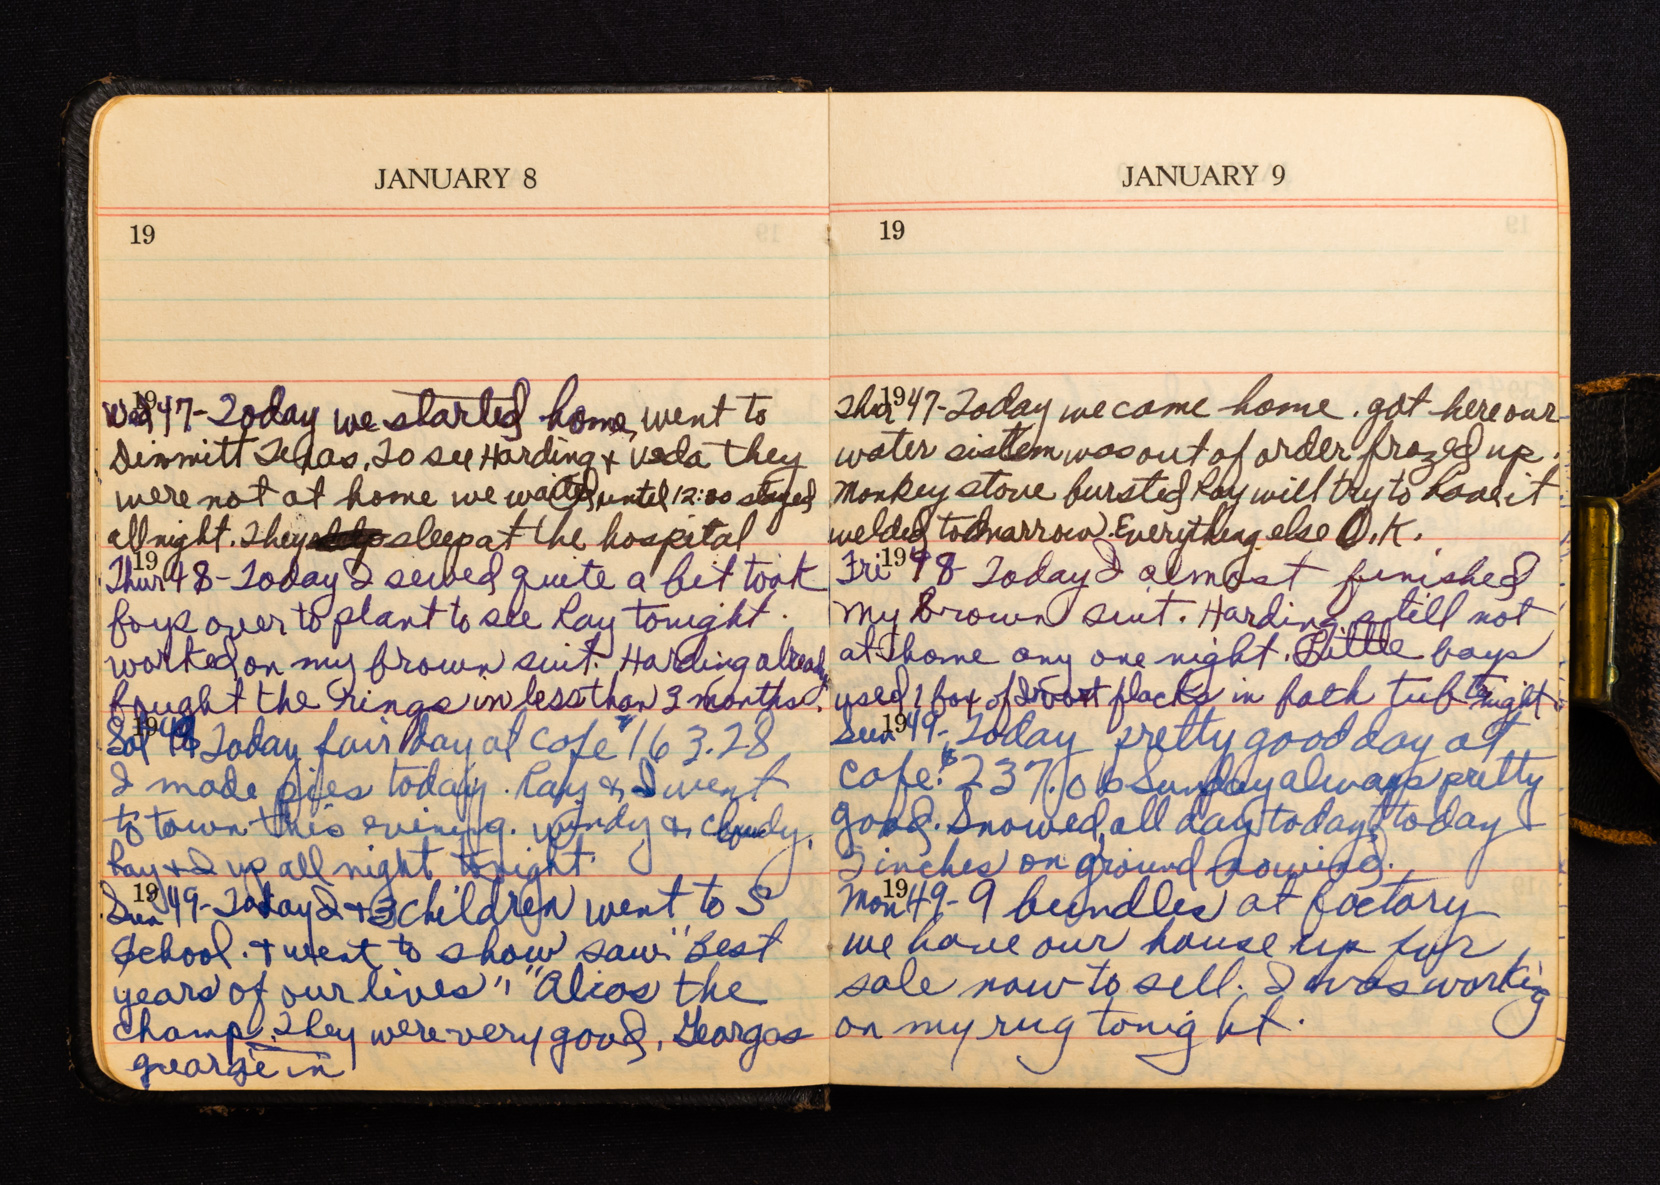 JANUARY 8
19
19
Wed 47- Today we started home, went to
Dimmitt Texas, To see Harding & Veda they
were not at home we waited, until 12:00 stayed
all night. They sleep at the hospital
19
Thur 48- Today I sewed quite a bit took
boys over to plant to see Ray tonight.
worked on my brown suit. Harding already
bought the rings in less than 3 months.
19
Sat Today fair day at cafe $163.28
I made pies today. Ray & I went
to town this evening. windy & cloudy.
Ray & I up all night tonight
19
Sun 49- Today I & 3 children went to S
School. & went to show saw "Best
years of our lives", "Alias the
champ. They were very good, Georges
george in
JANUARY 9
19
19
Thur 47- Today we came home. got here our
water sistem was out of order frozed up.
monkey stove bursted Ray will try to have it
welded tomarrow. Everything else O.K.
19
Fri 48 Today I almost finished
my brown suit. Harding still not
at home any one night. Little boys
used 1 box of flacks in bath tub tonight.
19
Sun 49- Today pretty good day at
cafe. $237.06 Sunday always pretty
good. Snowed, all day today, today &
5 inches on ground nowing.
19
Mon 49- 9 bundles at factory
we have our house up for
sale now to sell. I was working
on my rug tonight.